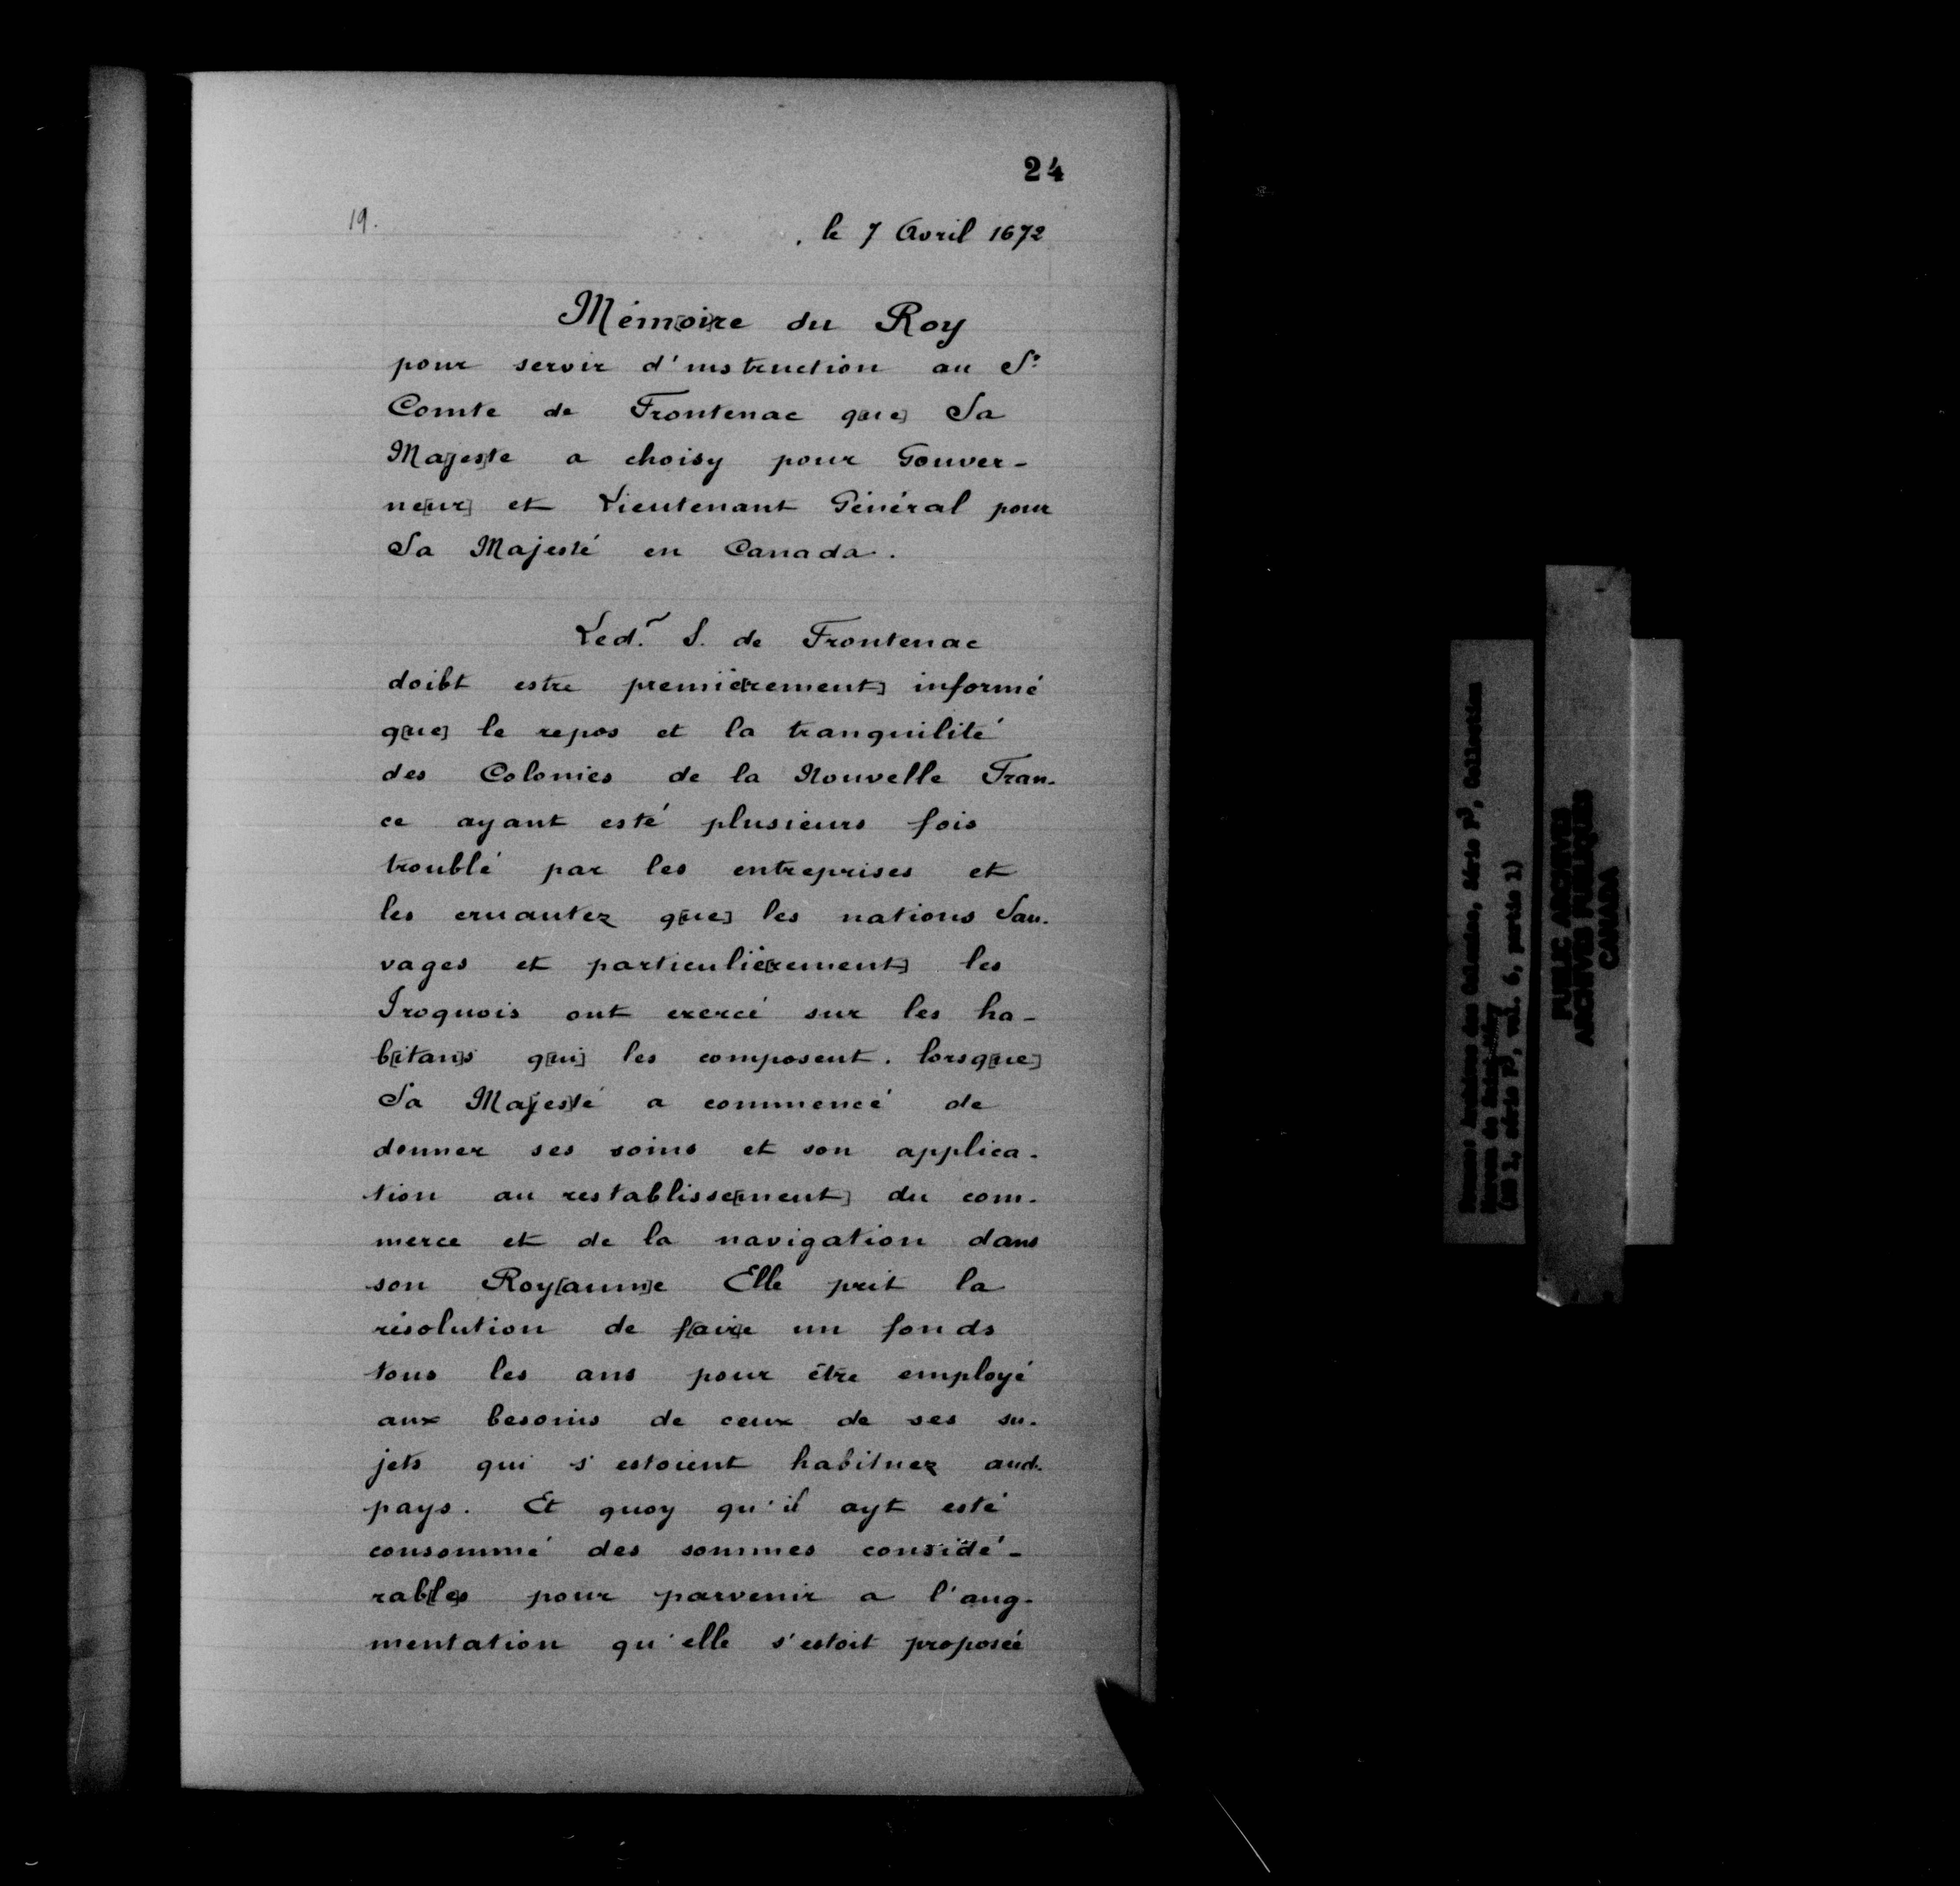 24
19.
le 7 Avril 1672
Mém[oi]re du Roy
pour servir d'instruction au Sr
Comte de Frontenac q[ue] Sa
Ma[jes]te a choisy pour Gouver-
ne[ur] et Lieutenant Général pour
Sa Majesté en Canada.
Led. S. de Frontenac
doibt estre premiè[rement] informé
q[ue] le repos et la tranquilité
des Colonies de la Nouvelle Fran-
ce ayant esté plusieurs fois
troublé par les entreprises et
les cruautez q[ue] les nations Sau-
vages et particuliè[rement] les
Iroquois ont exercé sur les ha-
b[itan]s q[ui] les composent. lorsq[ue]
Sa Ma[jes]té a commencé de
donner ses soins et son applica-
tion au restablisse[ment] du com-
merce et de la navigation dans
son Roy[aum]e Elle prit la
résolution de f[air]e un fonds
tous les ans pour être employé
aux besoins de ceux de ses su-
jets qui s'estoient habituez aud.
pays. Et quoy qu'il ayt esté
consommé des sommes considé-
rab[le]s pour parvenir a l'aug-
mentation qu'elle s'estoit proposée
France Archives des Colonies, Série F3, Collection
Moreau de Saint-Méry
(MG 1, série F3, vol. 6, partie 1)
PUBLIC ARCHIVES
ARCHIVES PUBLIQUES
CANADA